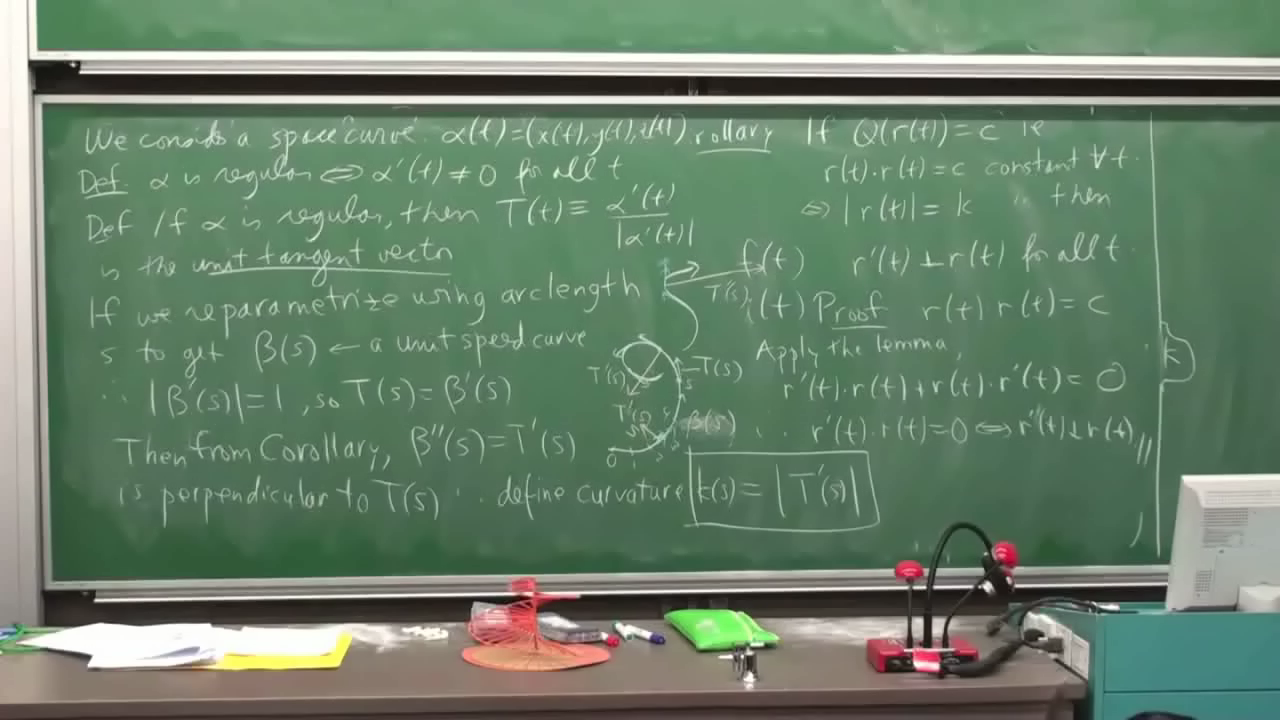 We consider a space curve. α(t)=(x(t),y(t),z(t))
Def. α is regular ⇔ α'(t) ≠ 0 for all t
Def If α is regular, then T(t) ≡ α'(t)/|α'(t)|
is the unit tangent vector
If we reparametrize using arclength
s to get β(s) ← a unit speed curve
∴ |β'(s)|=1, so T(s)=β'(s)
Then from Corollary, β''(s)=T'(s)
is perpendicular to T(s) ∴ define curvature k(s)=|T'(s)|
T(s)
T(s)
T'(s)
T'(s)
β(s)
s
0
rollary If Q(r(t))=c ie
r(t)·r(t)=c constant ∀t.
⇔ |r(t)|=k then
f(t) r'(t)⊥r(t) for all t.
(t) Proof r(t) r(t)=c
Apply the lemma,
r'(t)·r(t)+r(t)·r'(t)=0
∴ r'(t)·r(t)=0 ⇔ r'(t)⊥r(t) //
k